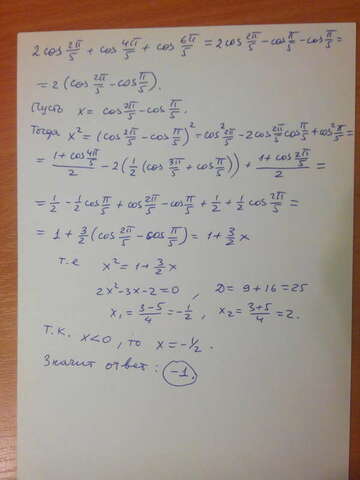 2cos 2π/5 + cos 4π/5 + cos 6π/5 = 2cos 2π/5 - cos π/5 - cos π/5 =
= 2(cos 2π/5 - cos π/5).
Пусть x = cos 2π/5 - cos π/5.
Тогда x² = (cos 2π/5 - cos π/5)² = cos² 2π/5 - 2cos 2π/5 cos π/5 + cos² π/5 =
= (1+cos 4π/5)/2 - 2(1/2(cos 3π/5 + cos π/5)) + (1+cos 2π/5)/2 =
= 1/2 - 1/2 cos π/5 + cos 2π/5 - cos π/5 + 1/2 + 1/2 cos 2π/5 =
= 1 + 3/2(cos 2π/5 - cos π/5) = 1 + 3/2 x
т.е x² = 1 + 3/2 x
2x² - 3x - 2 = 0 , D = 9 + 16 = 25
x₁ = (3-5)/4 = -1/2 , x₂ = (3+5)/4 = 2.
т.к. x < 0 , то x = -1/2 .
Значит ответ: -1.